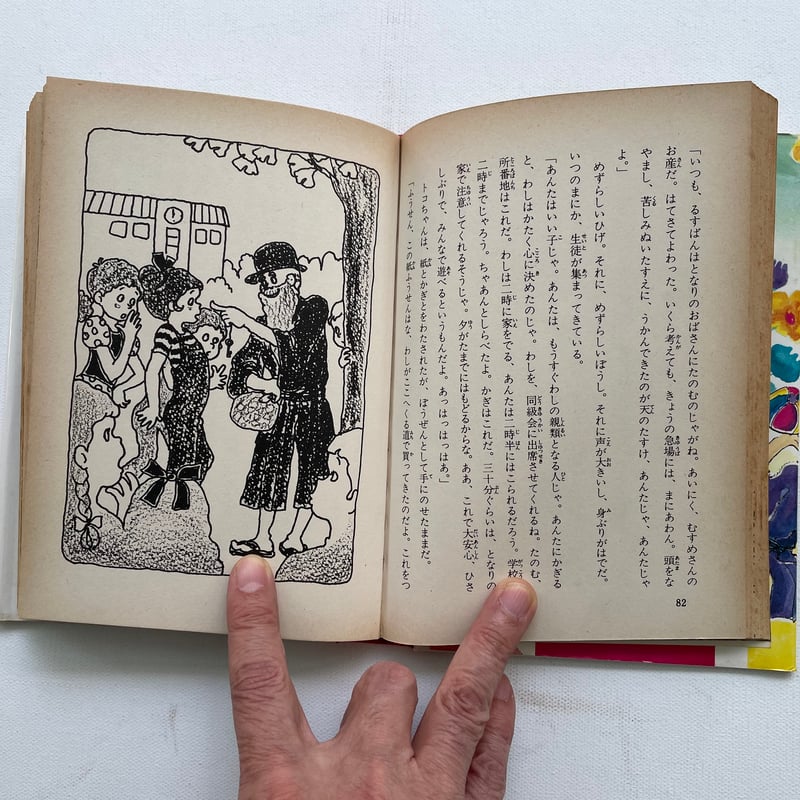 「いつも、るすばんはとなりのおばさんにたのむのじゃがね。あいにく、むすめさんの
お産だ。はてさてよわった。いくら考えても、きょうの急場には、まにあわん。頭をな
やまし、苦しみぬいたすえに、うかんできたのが天のたすけ、あんたじゃ、あんたじゃ
よ。」
めずらしいひげ。それに、めずらしいぼうし。それに声が大きいし、身ぶりがはでだ。
いつのまにか、生徒が集まってきている。
「あんたはいい子じゃ。あんたは、もうすぐわしの親類となる人じゃ。あんたにかぎる
と、わしはかたく心に決めたのじゃ。わしを、同級会に出席させてくれるね。たのむ、
所番地はこれだ。わしは二時に家をでる、あんたは二時半にはこられるだろう。学校
二時までじゃろう。ちゃあんとしらべたよ。かぎはこれだ。三十分ぐらいは、となりの
家で注意してくれるそうじゃ。夕がたまでにはもどるからな。ああ、これで大安心、ひさ
しぶりで、みんなで遊べるというもんだよ。あっはっはっはあ。」
トコちゃんは、紙とかぎとをわたされたが、ぼうぜんとして手にのせたままだ。
「ふうせん、この紙ふうせんはな、わしがここへくる道で買ってきたのだよ。これをつ
82